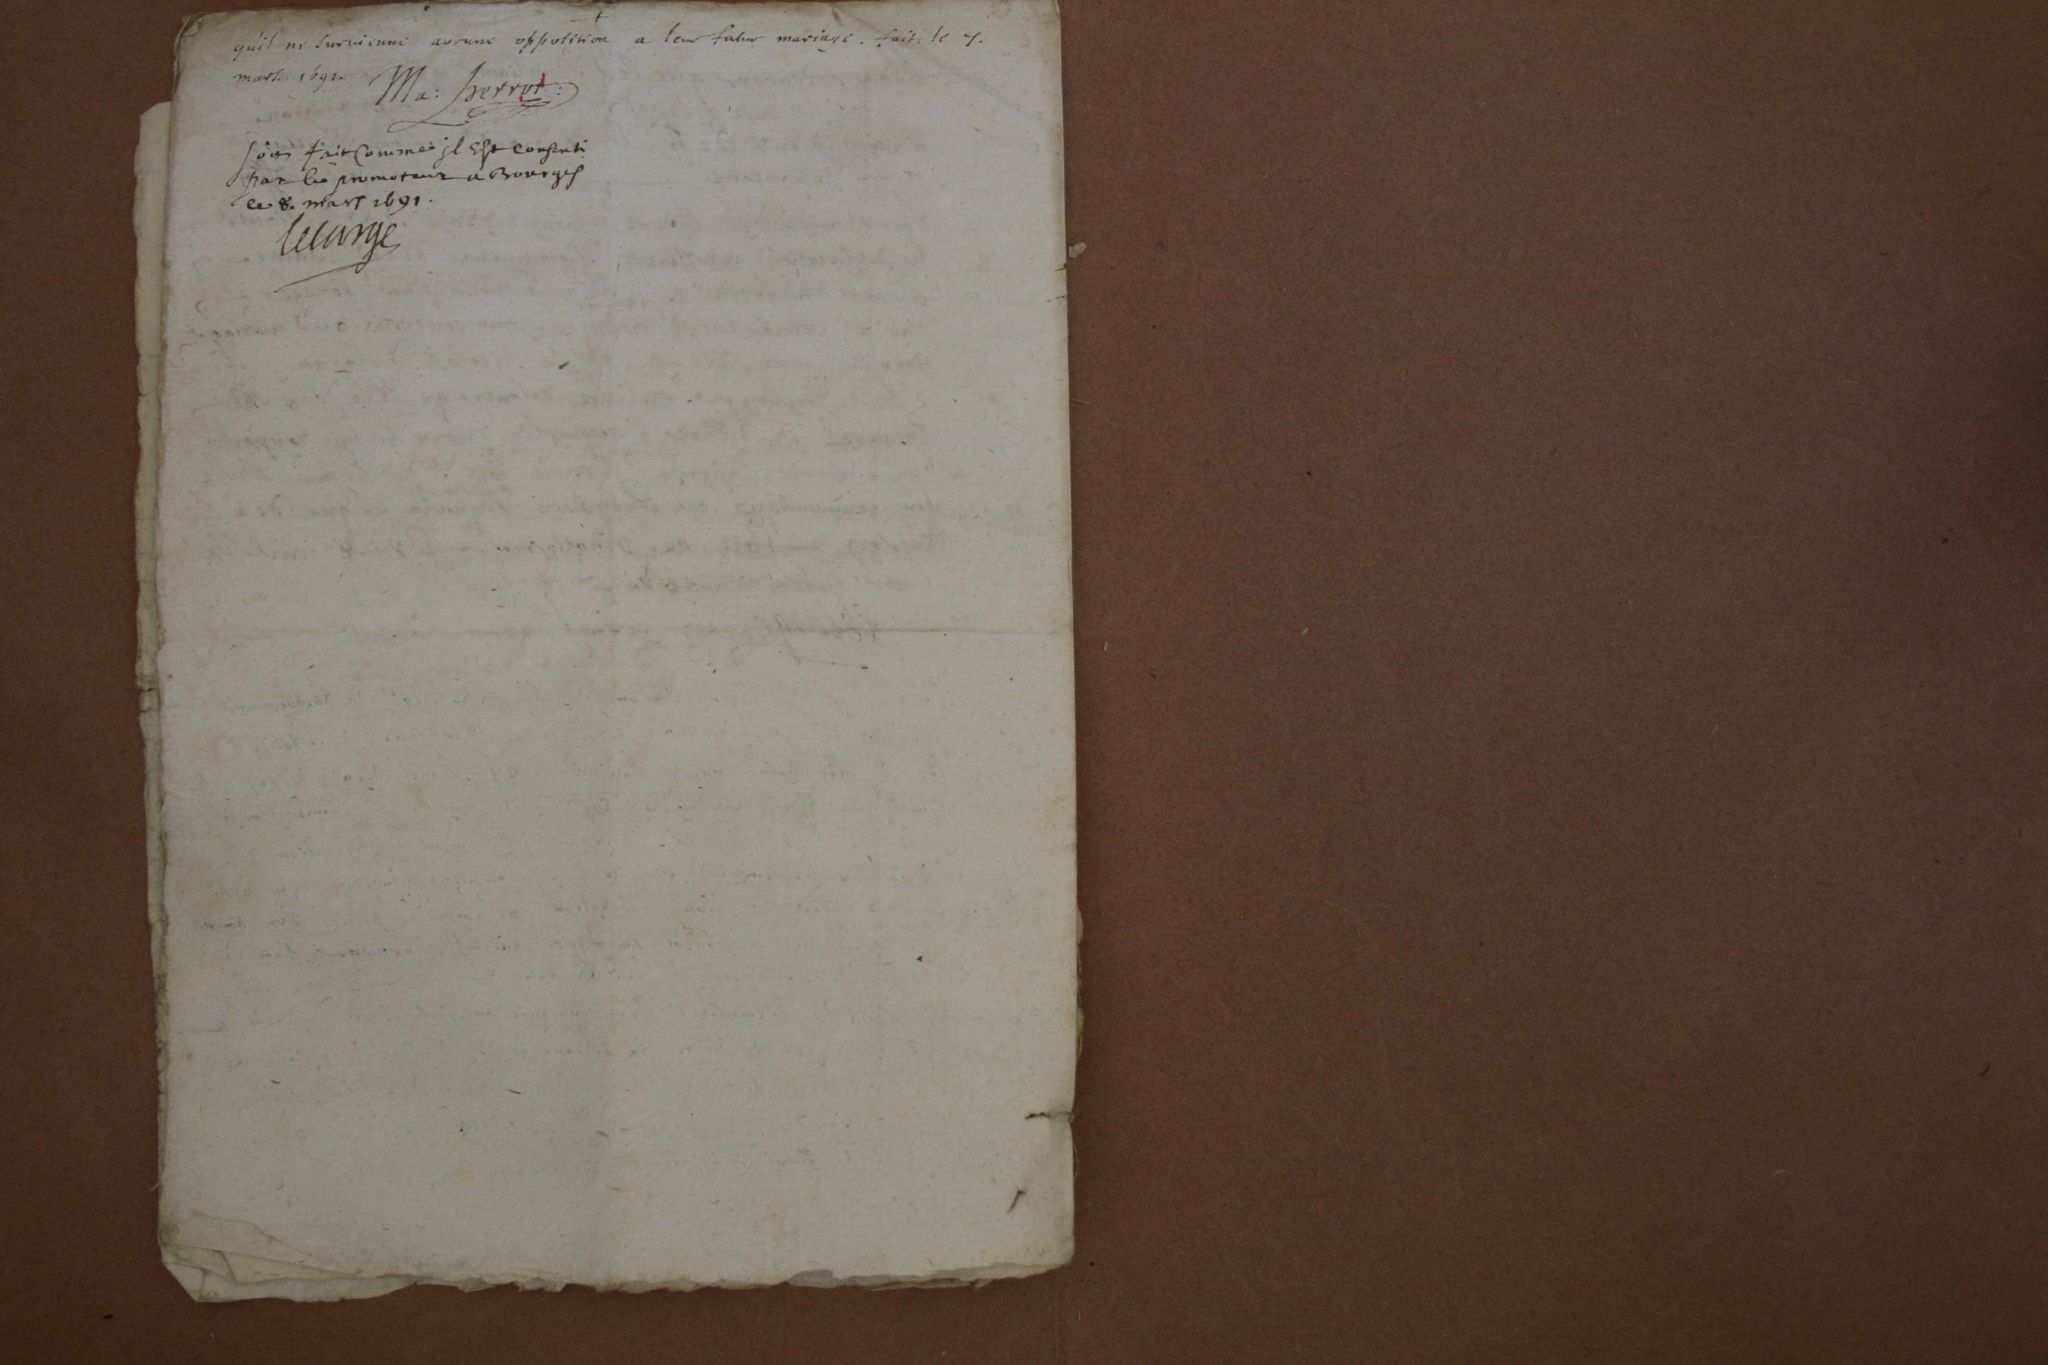 qu'il ne survienne aucune opposition a leur futur mariage. fait. le 7.
mars. 1691.
Ma: Perrot:
soit fait comme jl Est consenti
par le promoteur a Bourges
ce 8. mars 1691.
lelarge